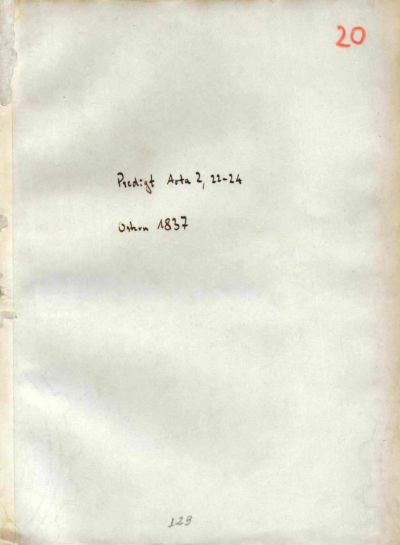 20
Predigt Acta 2, 22-24
Ostern 1837
129